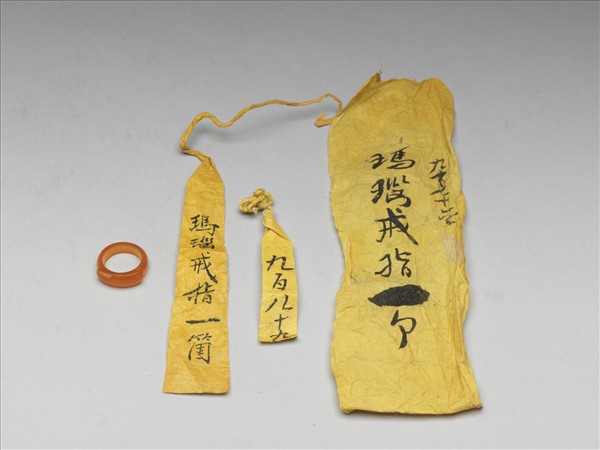 瑪瑙戒指一箇
九百八十九
瑪瑙戒指一个
九百